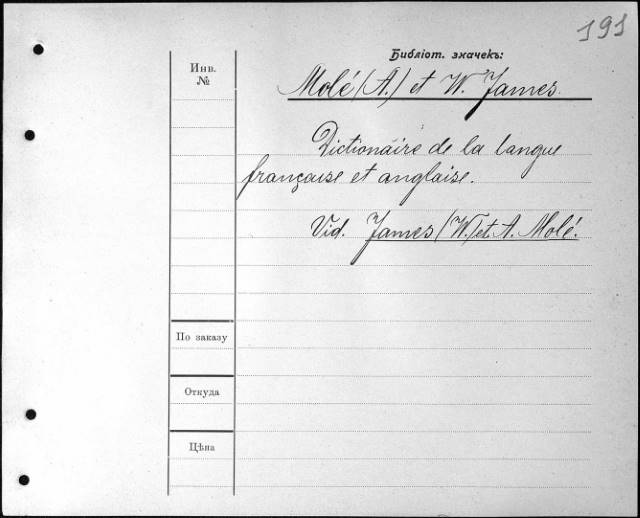 191
Библіот. значекъ:
Инв.
№
Molé (A.) et W. James.
Dictionaire de la langue
française et anglaise.
Vid. James (W.) et. A. Molé.
По заказу
Откуда
Цѣна